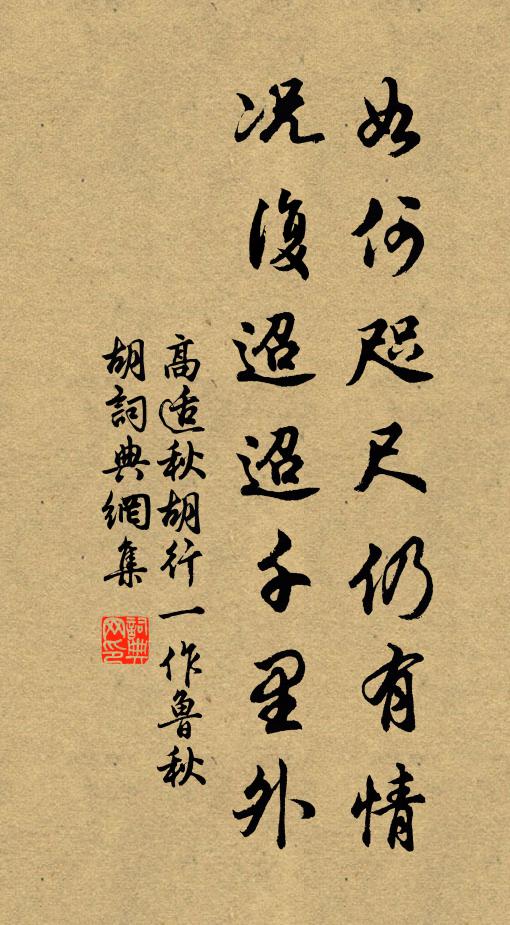 如何咫尺仍有情
况復迢迢千里外
高适秋胡行一作魯秋
胡詞典網集
詞典
网印